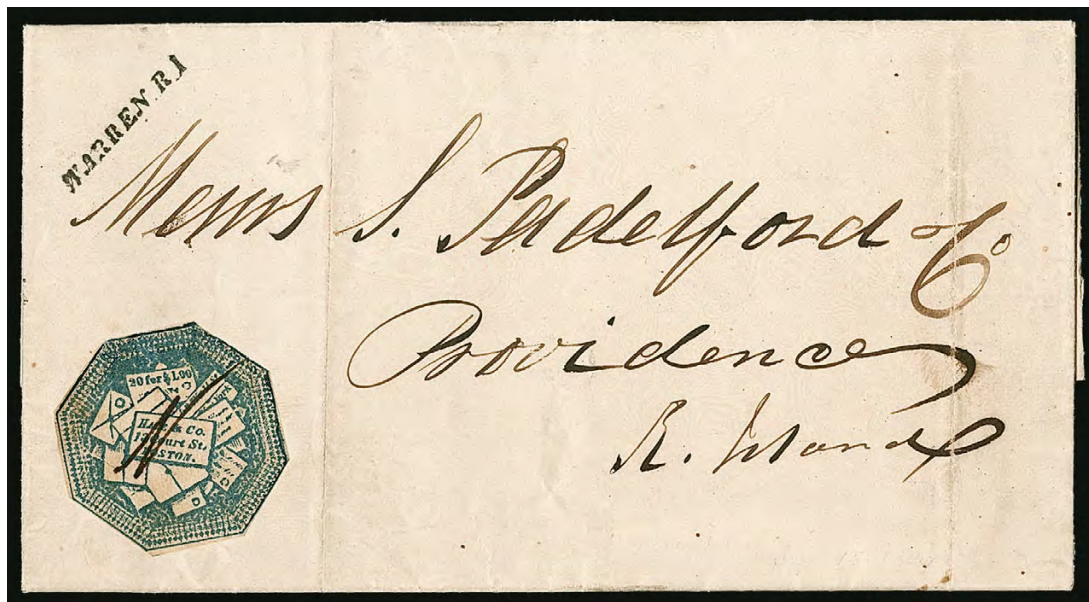 WARREN. R I
Messrs S. Padelford & Co
Providence
R. Island
20 for $1.00
& Co.
Court St.
BOSTON.